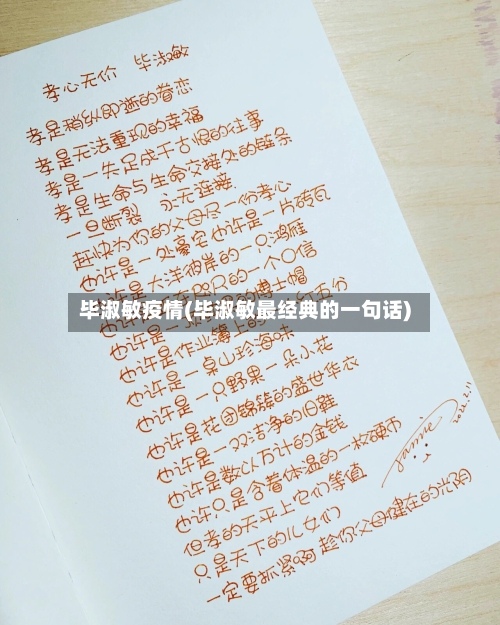 孝心无价 毕淑敏
孝是稍纵即逝的眷恋
孝是无法重现的幸福
孝是一失足成千古恨的往事
孝是生命与生命交接处的链条
一旦断裂 永无连接
赶快为你的父母尽一份孝心
也许是一处豪宅也许是一片砖瓦
也许是大洋彼岸的一只鸿雁
的一个口信
毕淑敏疫情(毕淑敏最经典的一句话)
也许是作业簿上的
也许是一桌山珍海味
也许是一只野果一朵小花
也许是花团锦簇的盛世华衣
也许是一双洁净的旧鞋
也许是数以万计的金钱
也许只是含着体温的一枚硬币
但孝的天平上它们等值
只是天下的儿女们
一定要抓紧啊 趁你父母健在的光阴